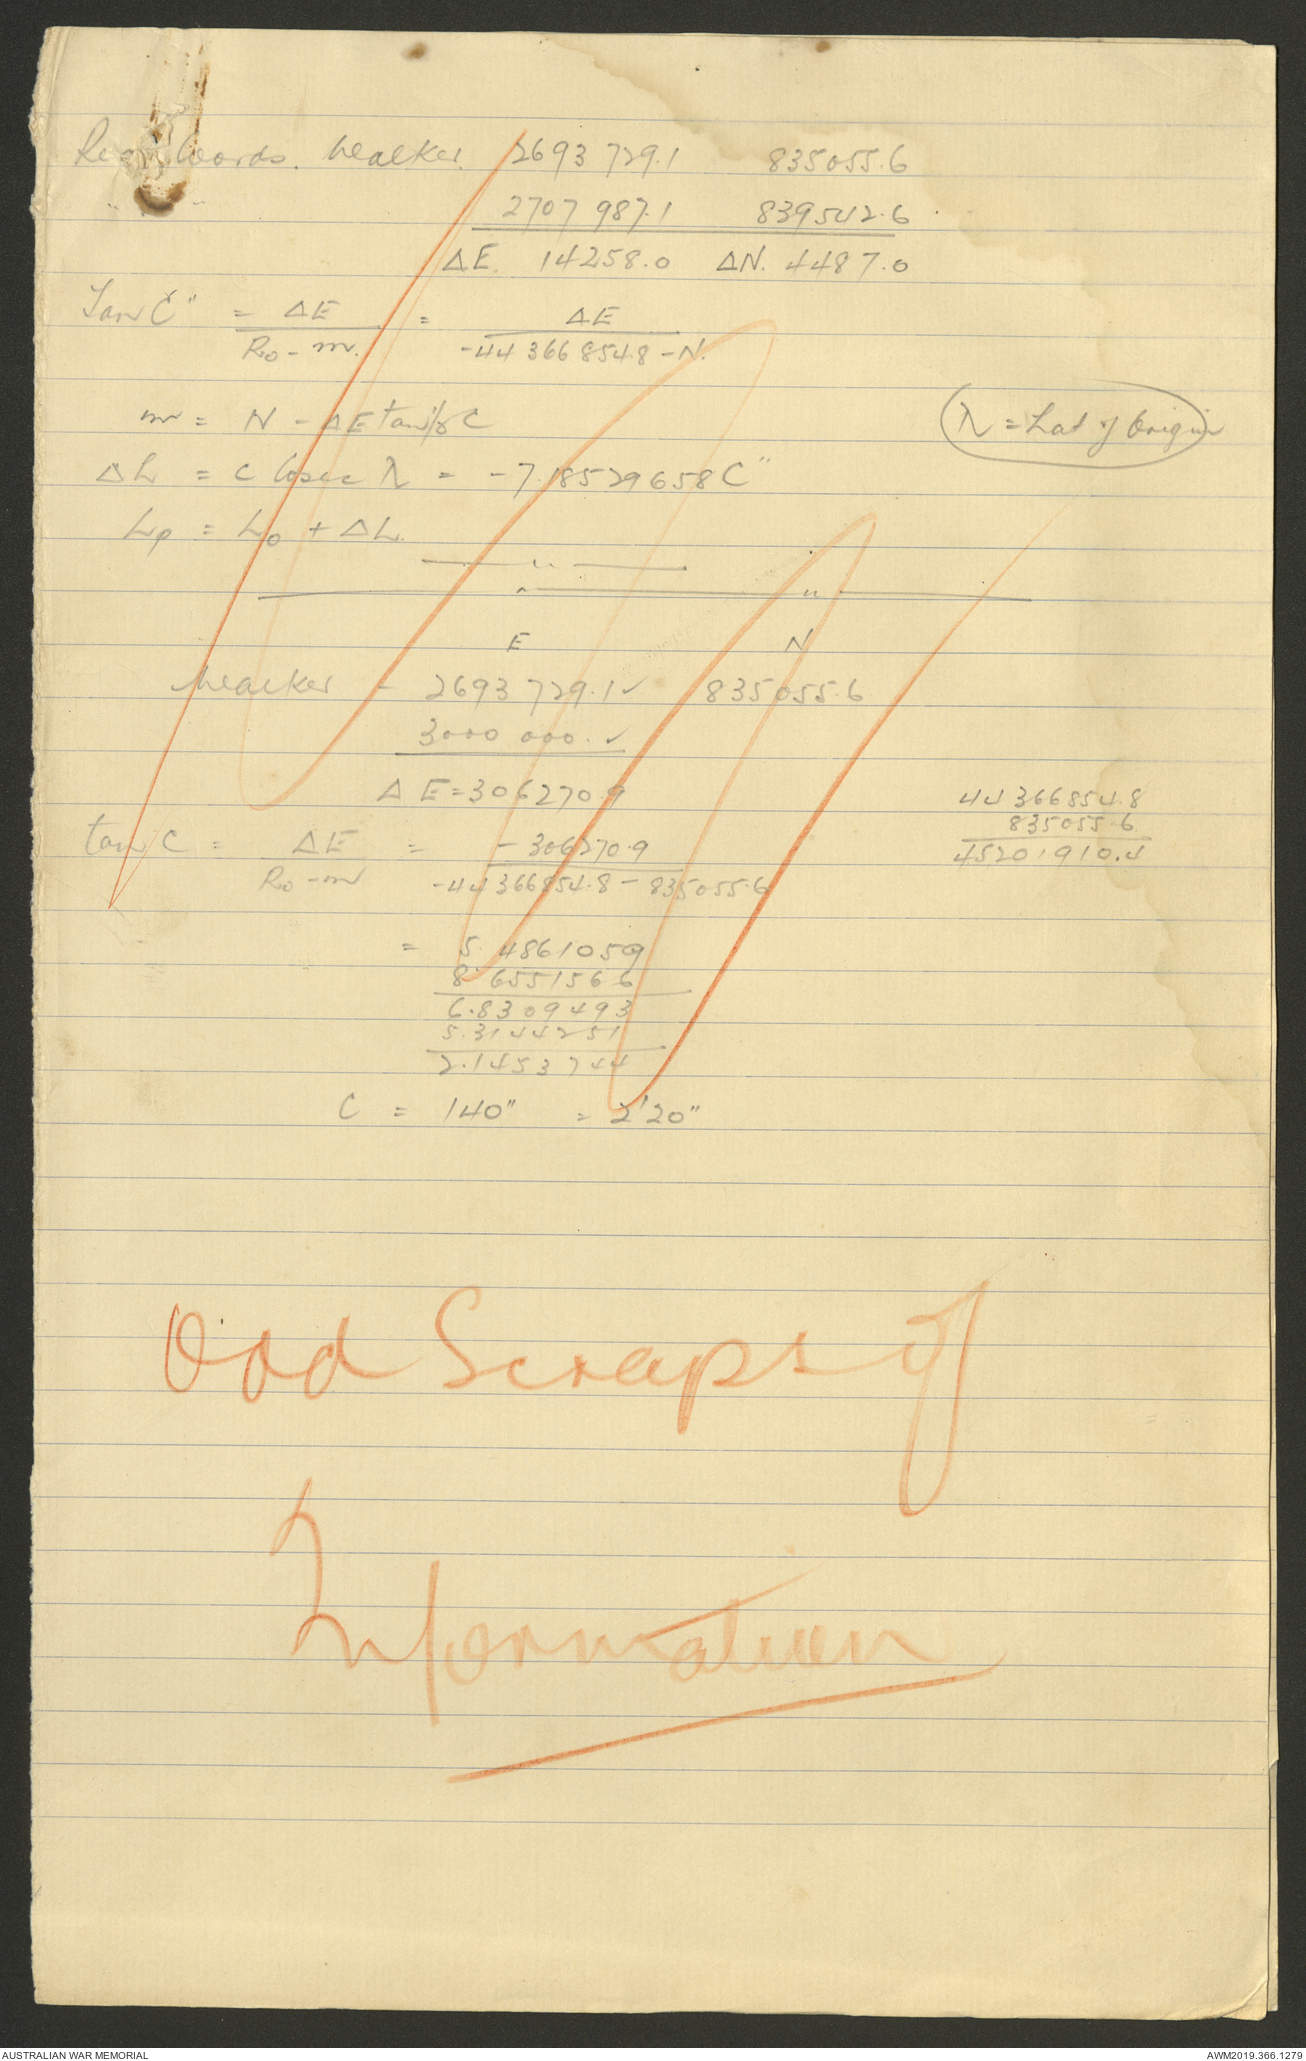 Coords. Walker 2693 729.1 835055.6
" " 2707 987.1 839542.6
ΔE. 14258.0 ΔN. 4487.0
Tan C" = ΔE / Ro - m. = ΔE / -44 366 854.8 - N.
m = N - ΔE tan ½ C
λ = Lat of Origin
ΔL = C Cosec λ = -7.18529658 C"
Lp = Lo + ΔL.
E N
Walker - 2693 729.1 ✓ 835055.6
3000 000. ✓
Δ E = 306270.9
44 366854.8
835055.6
45201910.4
tan C = ΔE / Ro - m = - 306270.9 / -44 366854.8 - 835055.6
= 5.4861059
8.6551566
6.8309493
5.3144251
2.1453744
C = 140" = 2'20"
Odd Scraps of
Information
AUSTRALIAN WAR MEMORIAL
AWM2019.366.1279